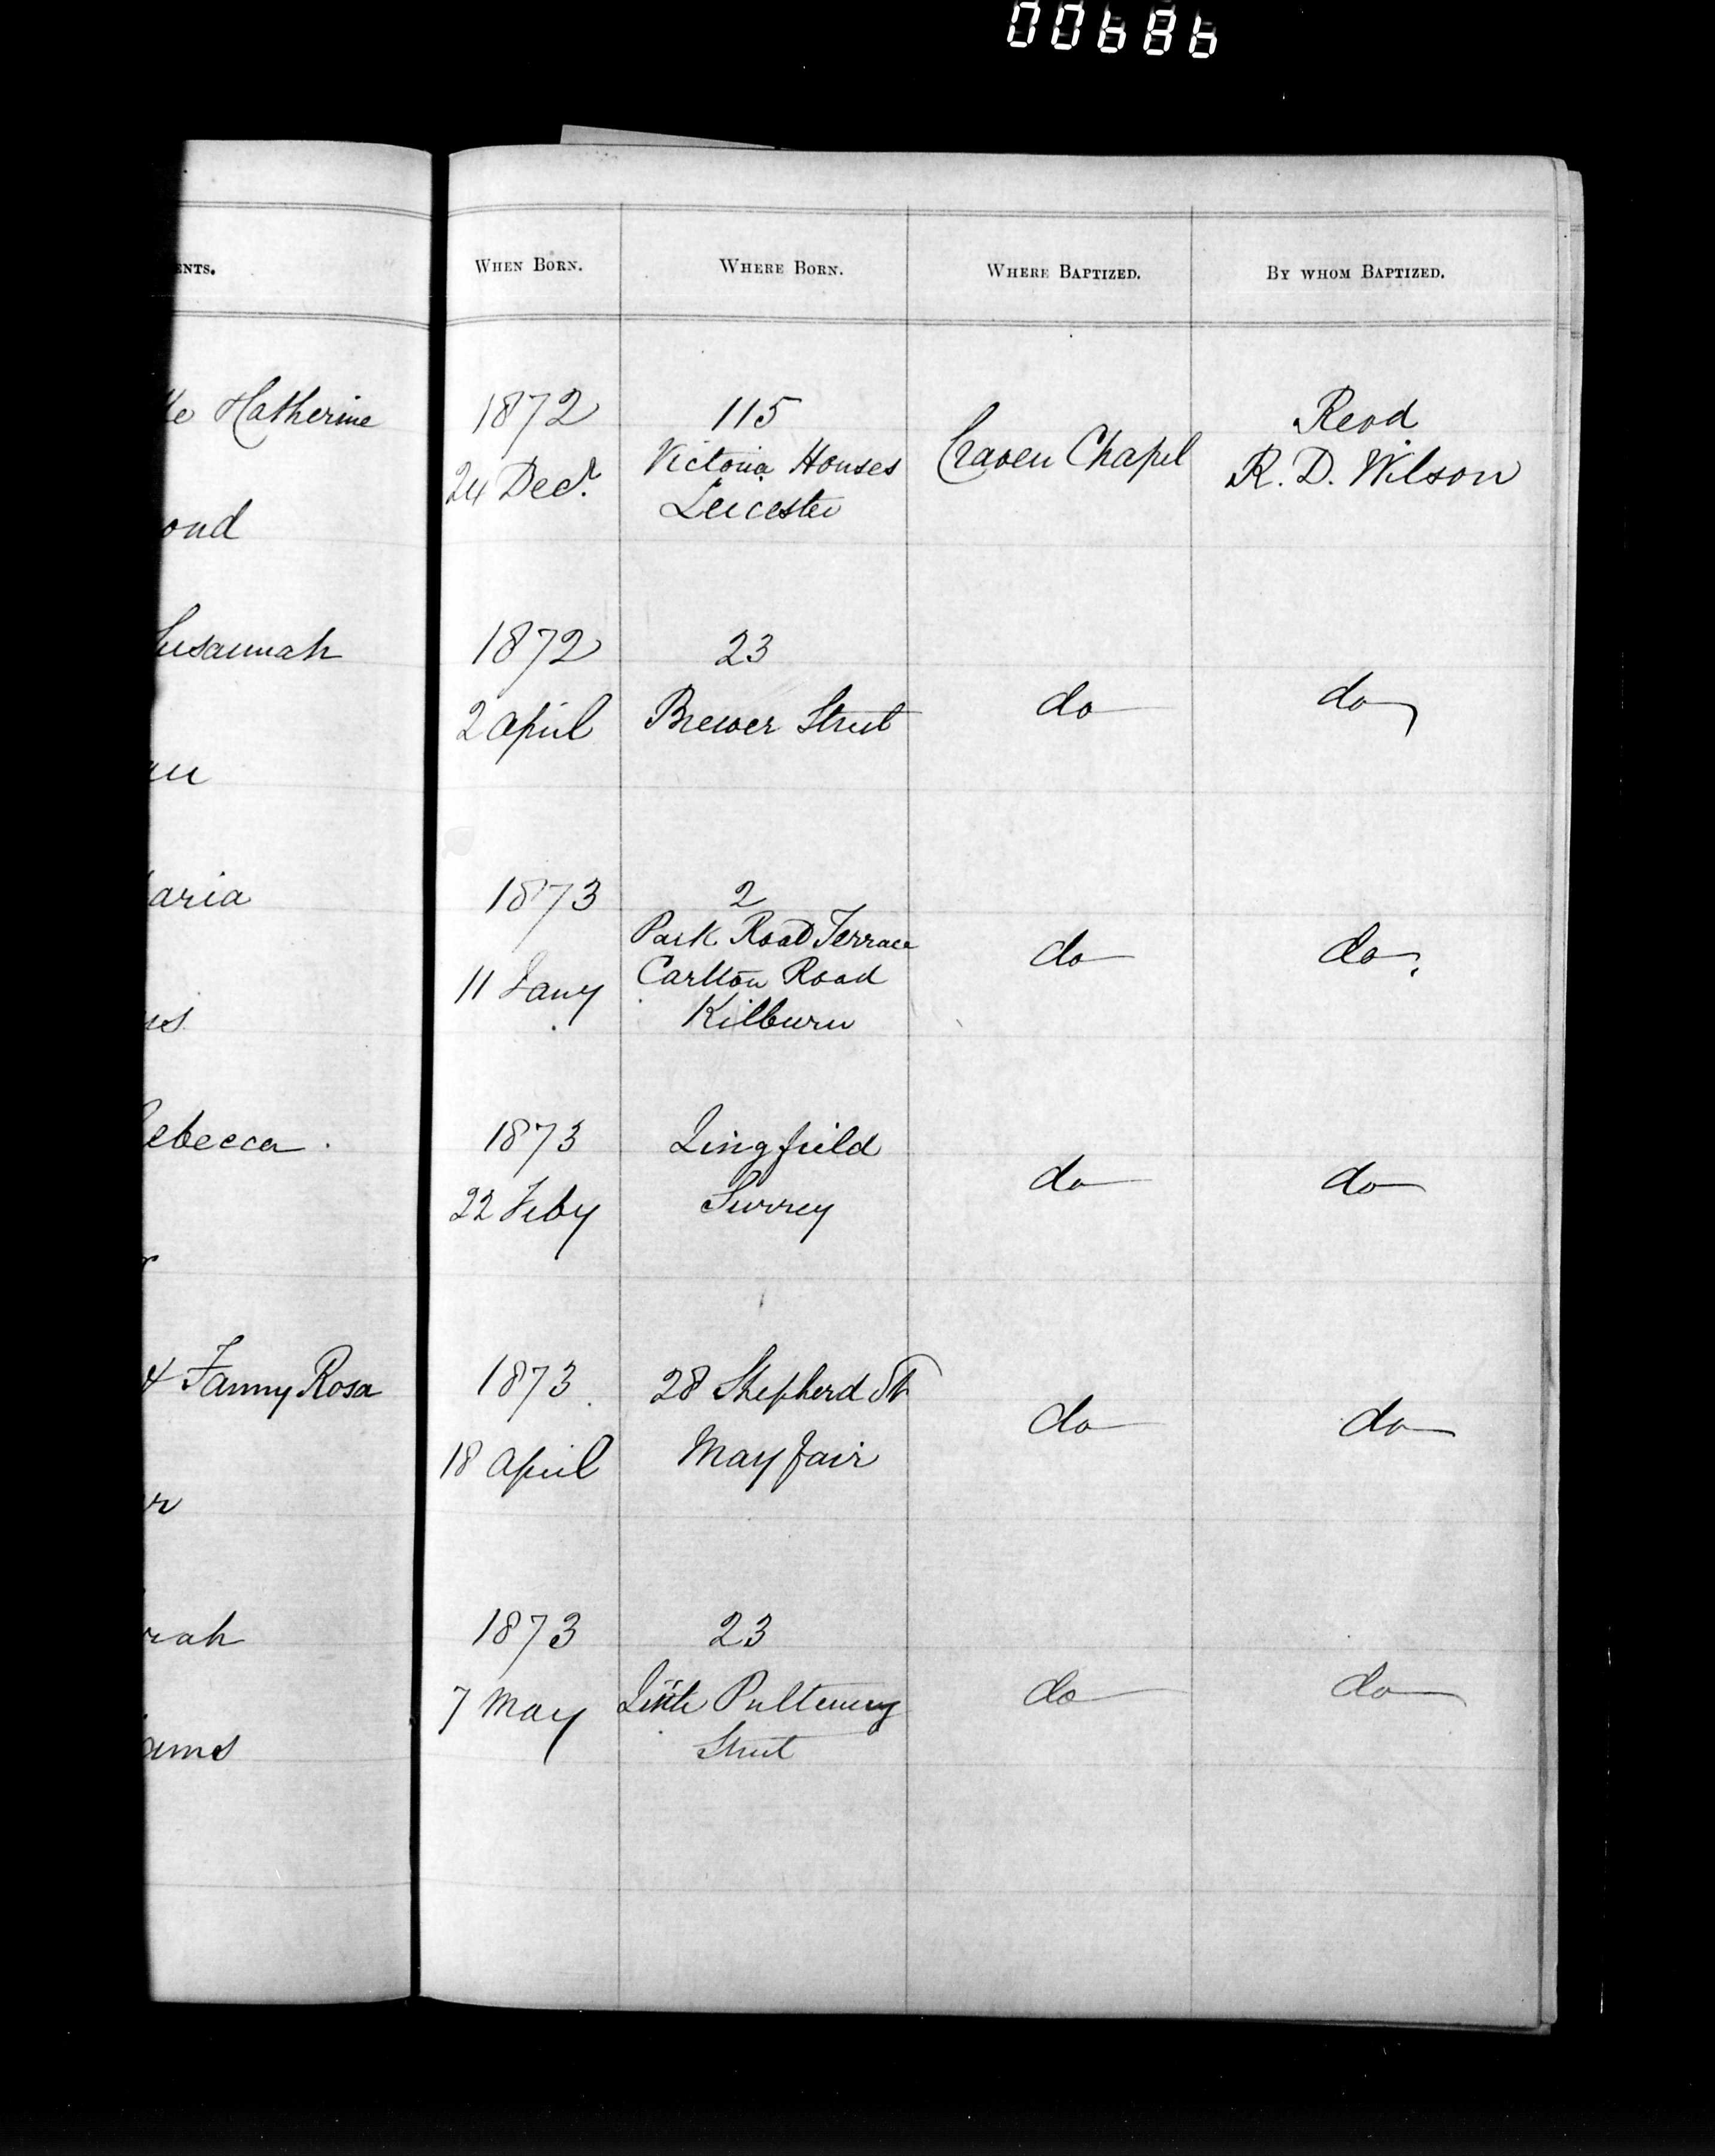 00686
ENTS.
WHEN BORN.
WHERE BORN.
WHERE BAPTIZED.
BY WHOM BAPTIZED.
Katherine
ond
1872
24 Decr
115
Victoria Houses
Leicester
Craven Chapel
Revd
R. D. Wilson
Susannah
1872
2 April
23
Brewer Street
do
do
aria
1873
11 Jany
2
Park Road Terrace
Carlton Road
Kilburn
do
do
ebecca
1873
22 Feby
Lingfield
Surrey
do
do
& Fanny Rosa
r
1873
18 April
28 Shepherd St
May fair
do
do
rah
ams
1873
7 May
23
Little Pulteney
Street
do
do